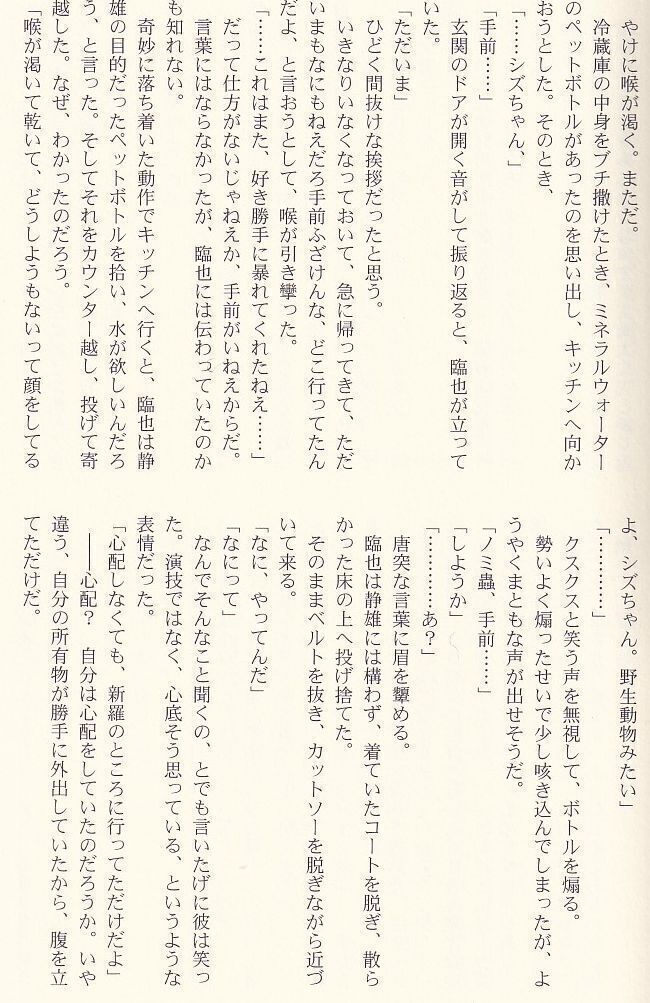 やけに喉が渇く。まただ。
冷蔵庫の中身をブチ撒けたとき、ミネラルウォーター
のペットボトルがあったのを思い出し、キッチンへ向か
おうとした。そのとき、
「……シズちゃん、」
「手前……」
玄関のドアが開く音がして振り返ると、臨也が立って
いた。
「ただいま」
ひどく間抜けな挨拶だったと思う。
いきなりいなくなっておいて、急に帰ってきて、ただ
いまもなにもねえだろ手前ふざけんな、どこ行ってたん
だよ、と言おうとして、喉が引き攣った。
「……これはまた、好き勝手に暴れてくれたねえ……」
だって仕方がないじゃねえか、手前がいねえからだ。
言葉にはならなかったが、臨也には伝わっていたのか
も知れない。
奇妙に落ち着いた動作でキッチンへ行くと、臨也は静
雄の目的だったペットボトルを拾い、水が欲しいんだろ
う、と言った。そしてそれをカウンター越し、投げて寄
越した。なぜ、わかったのだろう。
「喉が渇いて乾いて、どうしようもないって顔をしてる
よ、シズちゃん。野生動物みたい」
「…………」
クスクスと笑う声を無視して、ボトルを煽る。
勢いよく煽ったせいで少し咳き込んでしまったが、よ
うやくまともな声が出せそうだ。
「ノミ蟲、手前……」
「しようか」
「…………あ？」
唐突な言葉に眉を顰める。
臨也は静雄には構わず、着ていたコートを脱ぎ、散ら
かった床の上へ投げ捨てた。
そのままベルトを抜き、カットソーを脱ぎながら近づ
いて来る。
「なに、やってんだ」
「なにって」
なんでそんなこと聞くの、とでも言いたげに彼は笑っ
た。演技ではなく、心底そう思っている、というような
表情だった。
「心配しなくても、新羅のところに行ってただけだよ」
――心配？　自分は心配をしていたのだろうか。いや
違う、自分の所有物が勝手に外出していたから、腹を立
てただけだ。